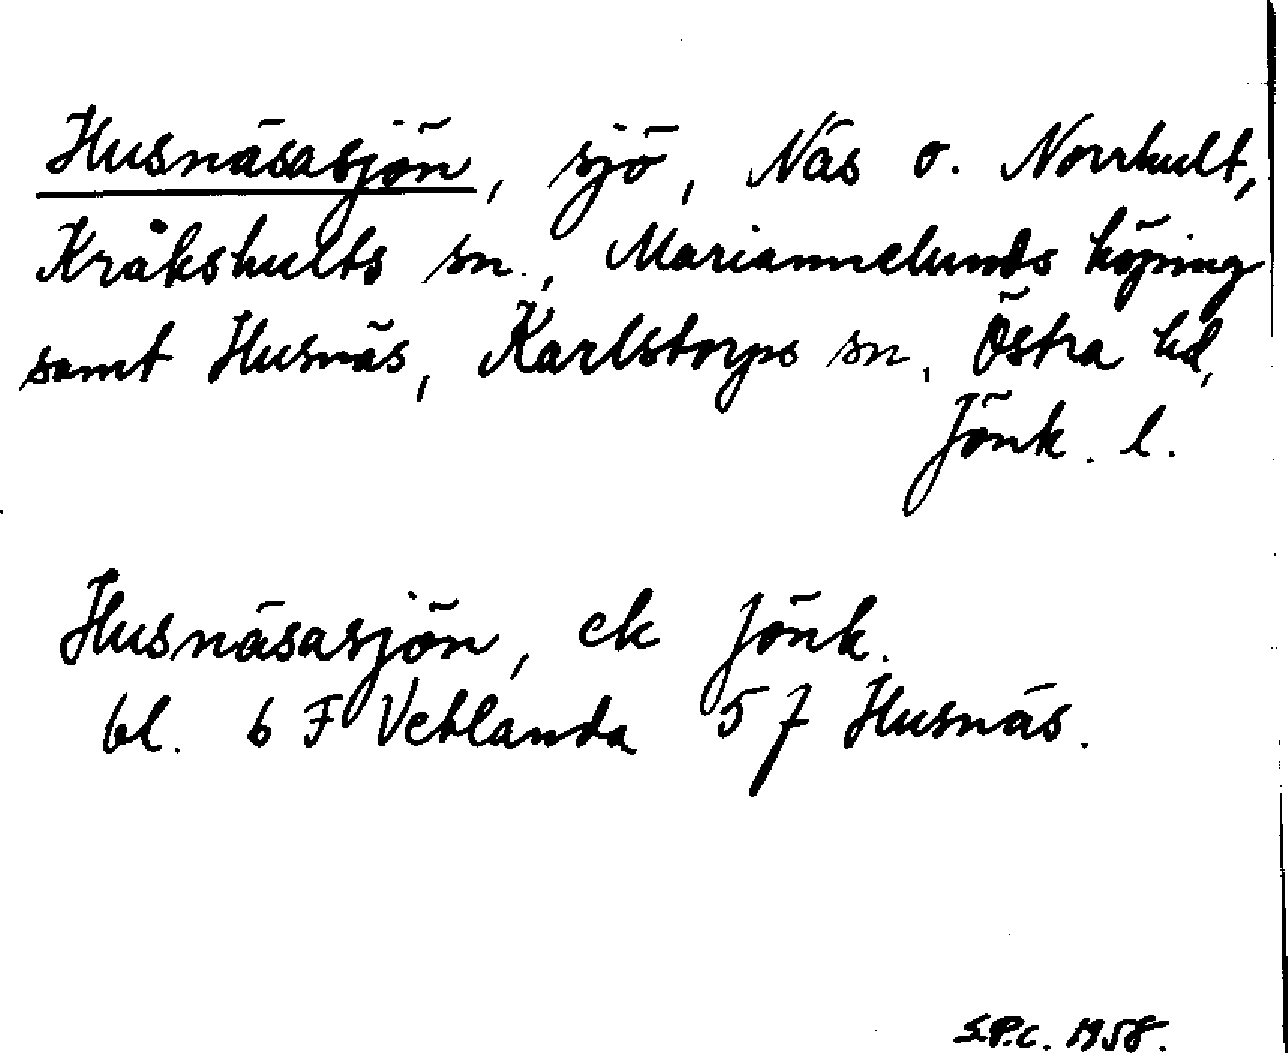 Husnäsasjön, sjö, Näs o. Norrhult,
Kråkshults sn., Mariannelunds köping
samt Husnäs, Karlstorps sn, Östra hd,
Jönk. l.
Husnäsasjön, ek Jönk.
bl. 6 F Vetlanda 5 f Husnäs.
S.P.C. 1958.